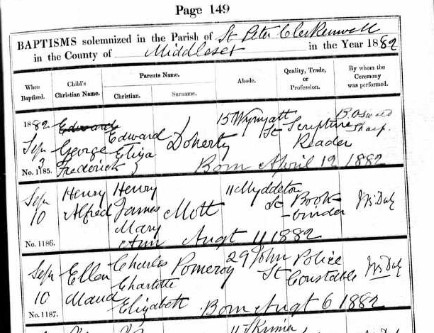 Page 149
BAPTISMS solemnized in the Parish of St Peter Clerkenwell
in the County of Middlesex in the Year 1882
When Baptized. Child's Christian Name. Parents Name. Christian. Surname. Abode. Quality, Trade, or Profession. By whom the Ceremony was performed.
1882 Edward 15 Wynyatt
Sep George Edward Doherty St Scripture
3 Frederick Eliza Reader
No. 1185. Born April 19 1882
Sep Henry Henry 11 Myddelton
10 Alfred James Mott St Book
Mary binder
No. 1186. Ann Augt 11 1882
Sep Ellen Charles Pomeroy 29 John Police
10 Maud Charlotte St Constable
No. 1187. Elizabeth Born Augt 6 1882